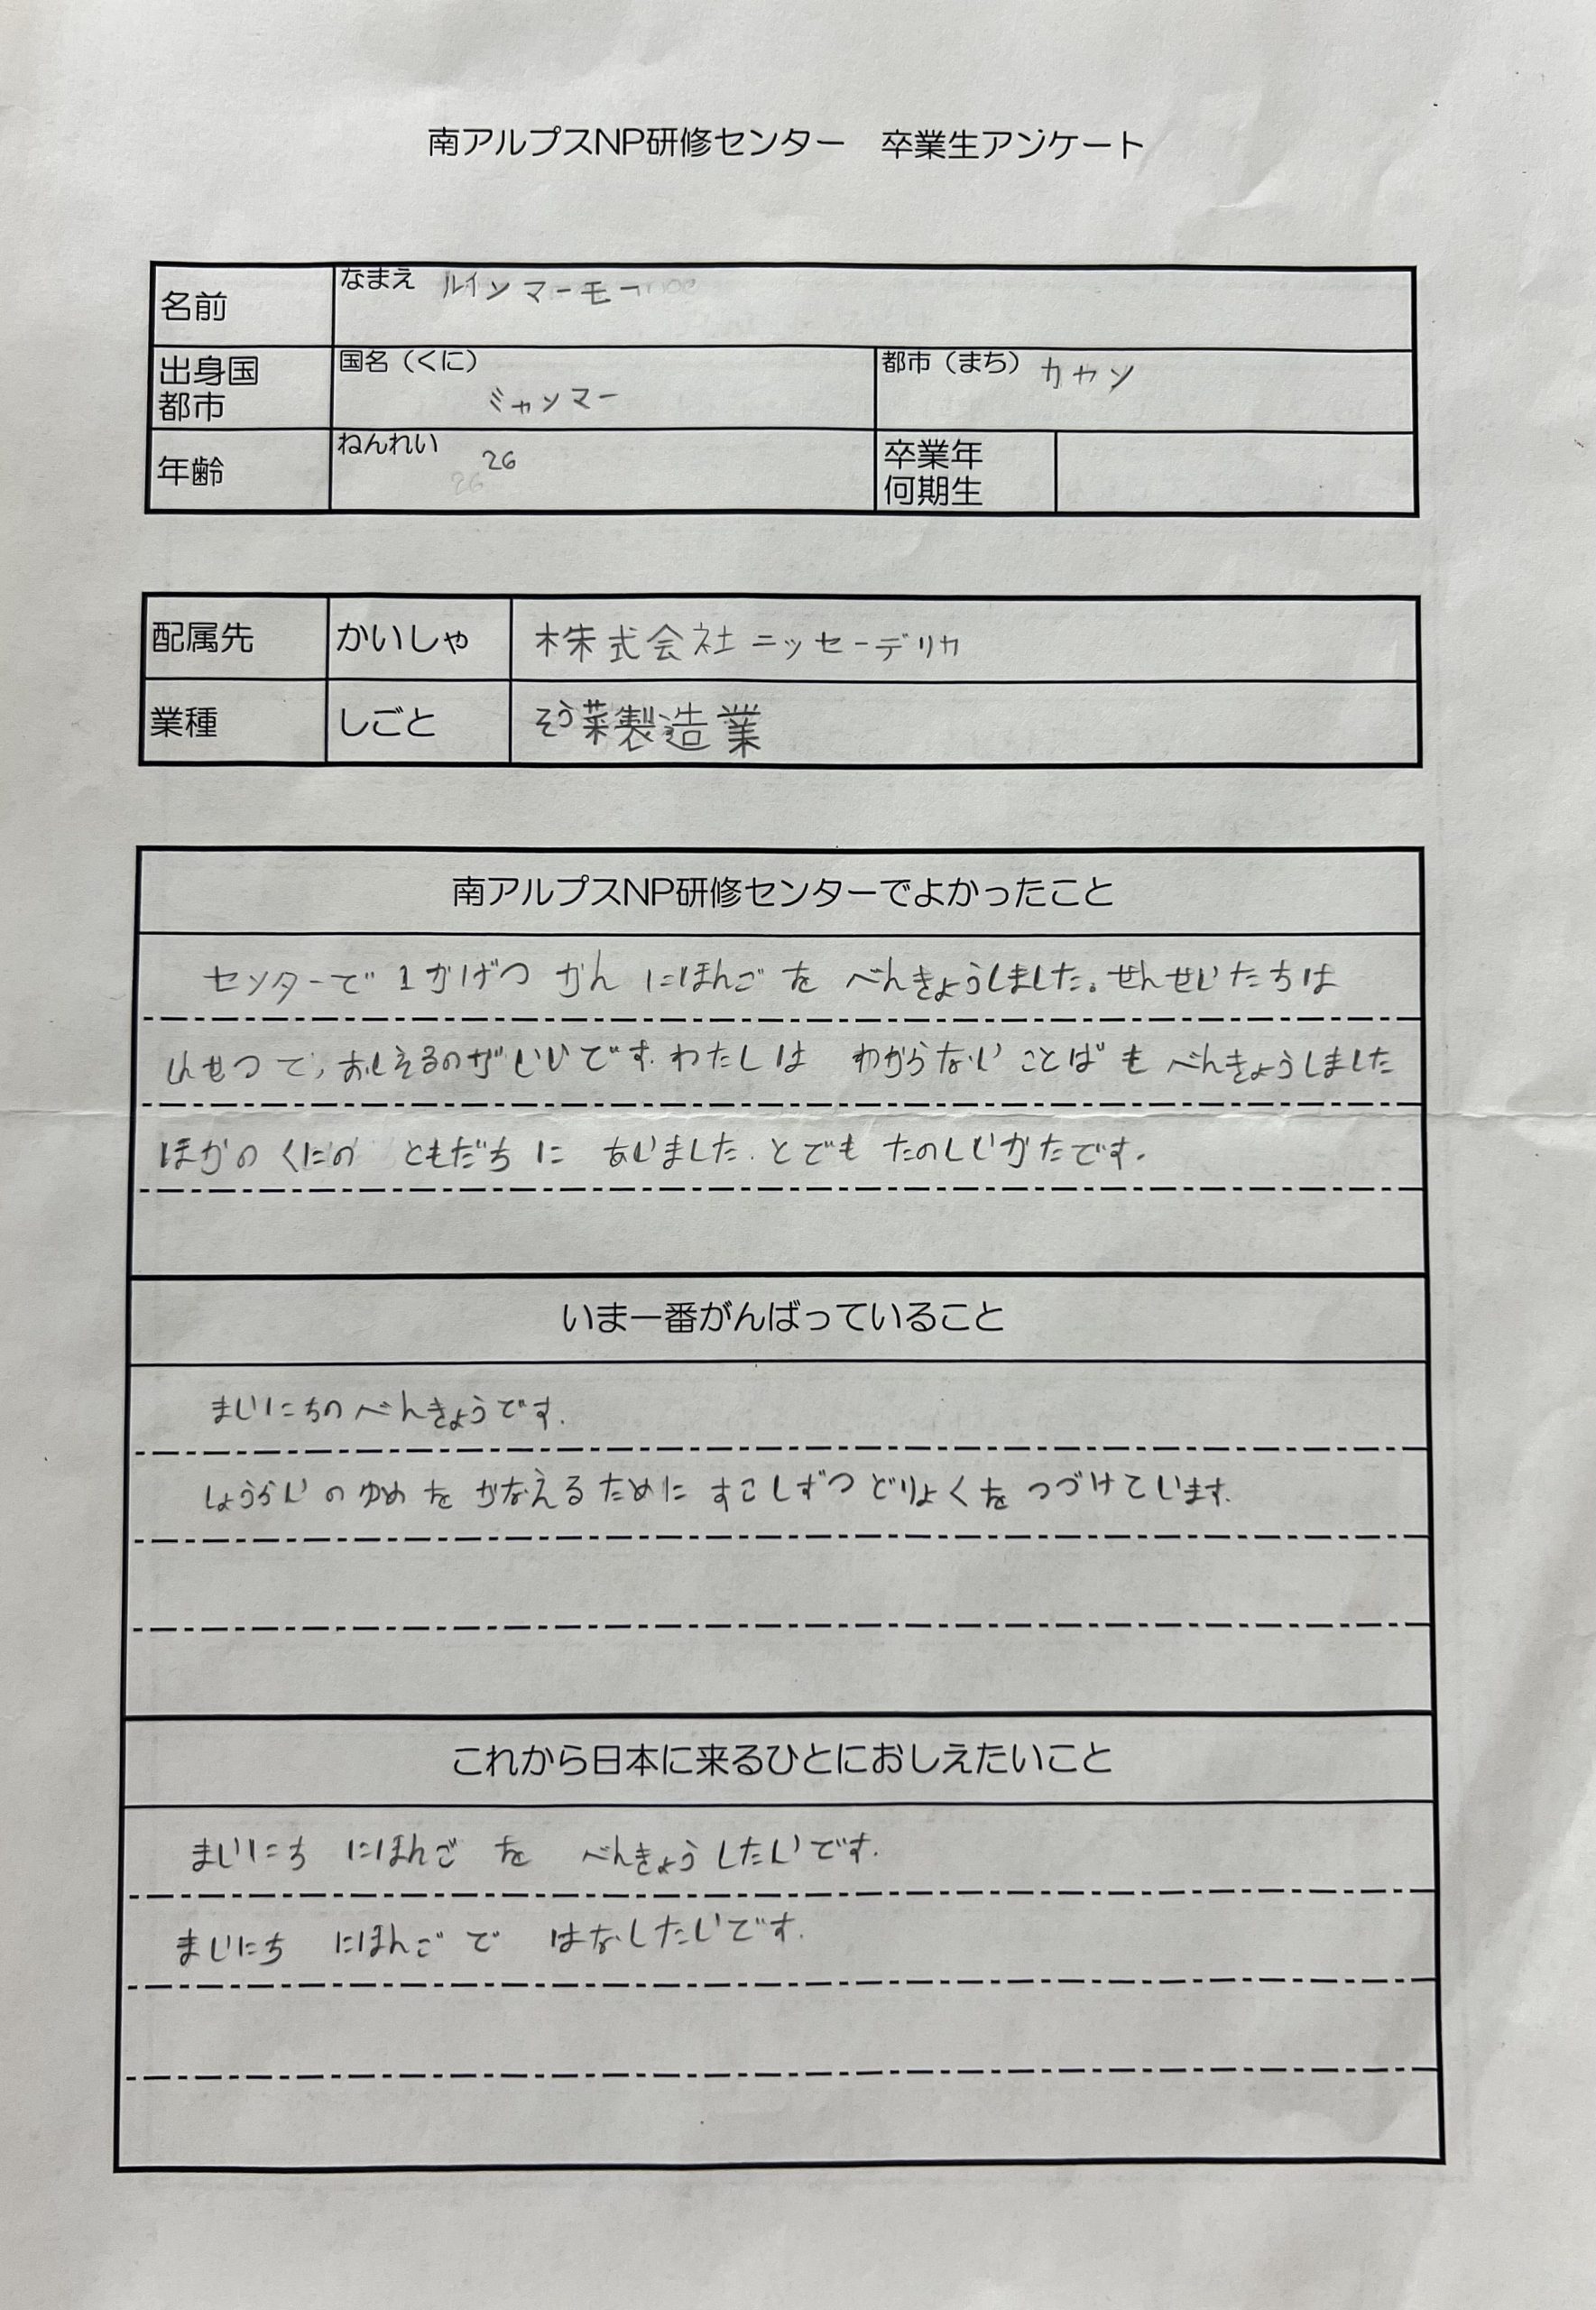 南アルプスNP研修センター　卒業生アンケート
名前 なまえ ルインマーモー
出身国都市 国名（くに） ミャンマー 都市（まち） カヤン
年齢 ねんれい 26 卒業年何期生
配属先 かいしゃ 株式会社ニッセーデリカ
業種 しごと そう菜製造業
南アルプスNP研修センターでよかったこと
センターで 1かげつ かん にほんご を べんきょうしました。せんせいたちは
いもつで、おしえるのがいいです。わたしは わからない ことば も べんきょうしました
ほかの くにの ともだち に あいました。とでも たのしいかたです。
いま一番がんばっていること
まいにちの べんきょうです。
しょうらい の ゆめ を かなえる ために すこしずつ どりょくを つづけています。
これから日本に来るひとにおしえたいこと
まいにち にほんご を べんきょう したいです。
まいにち にほんご で はなしたいです。